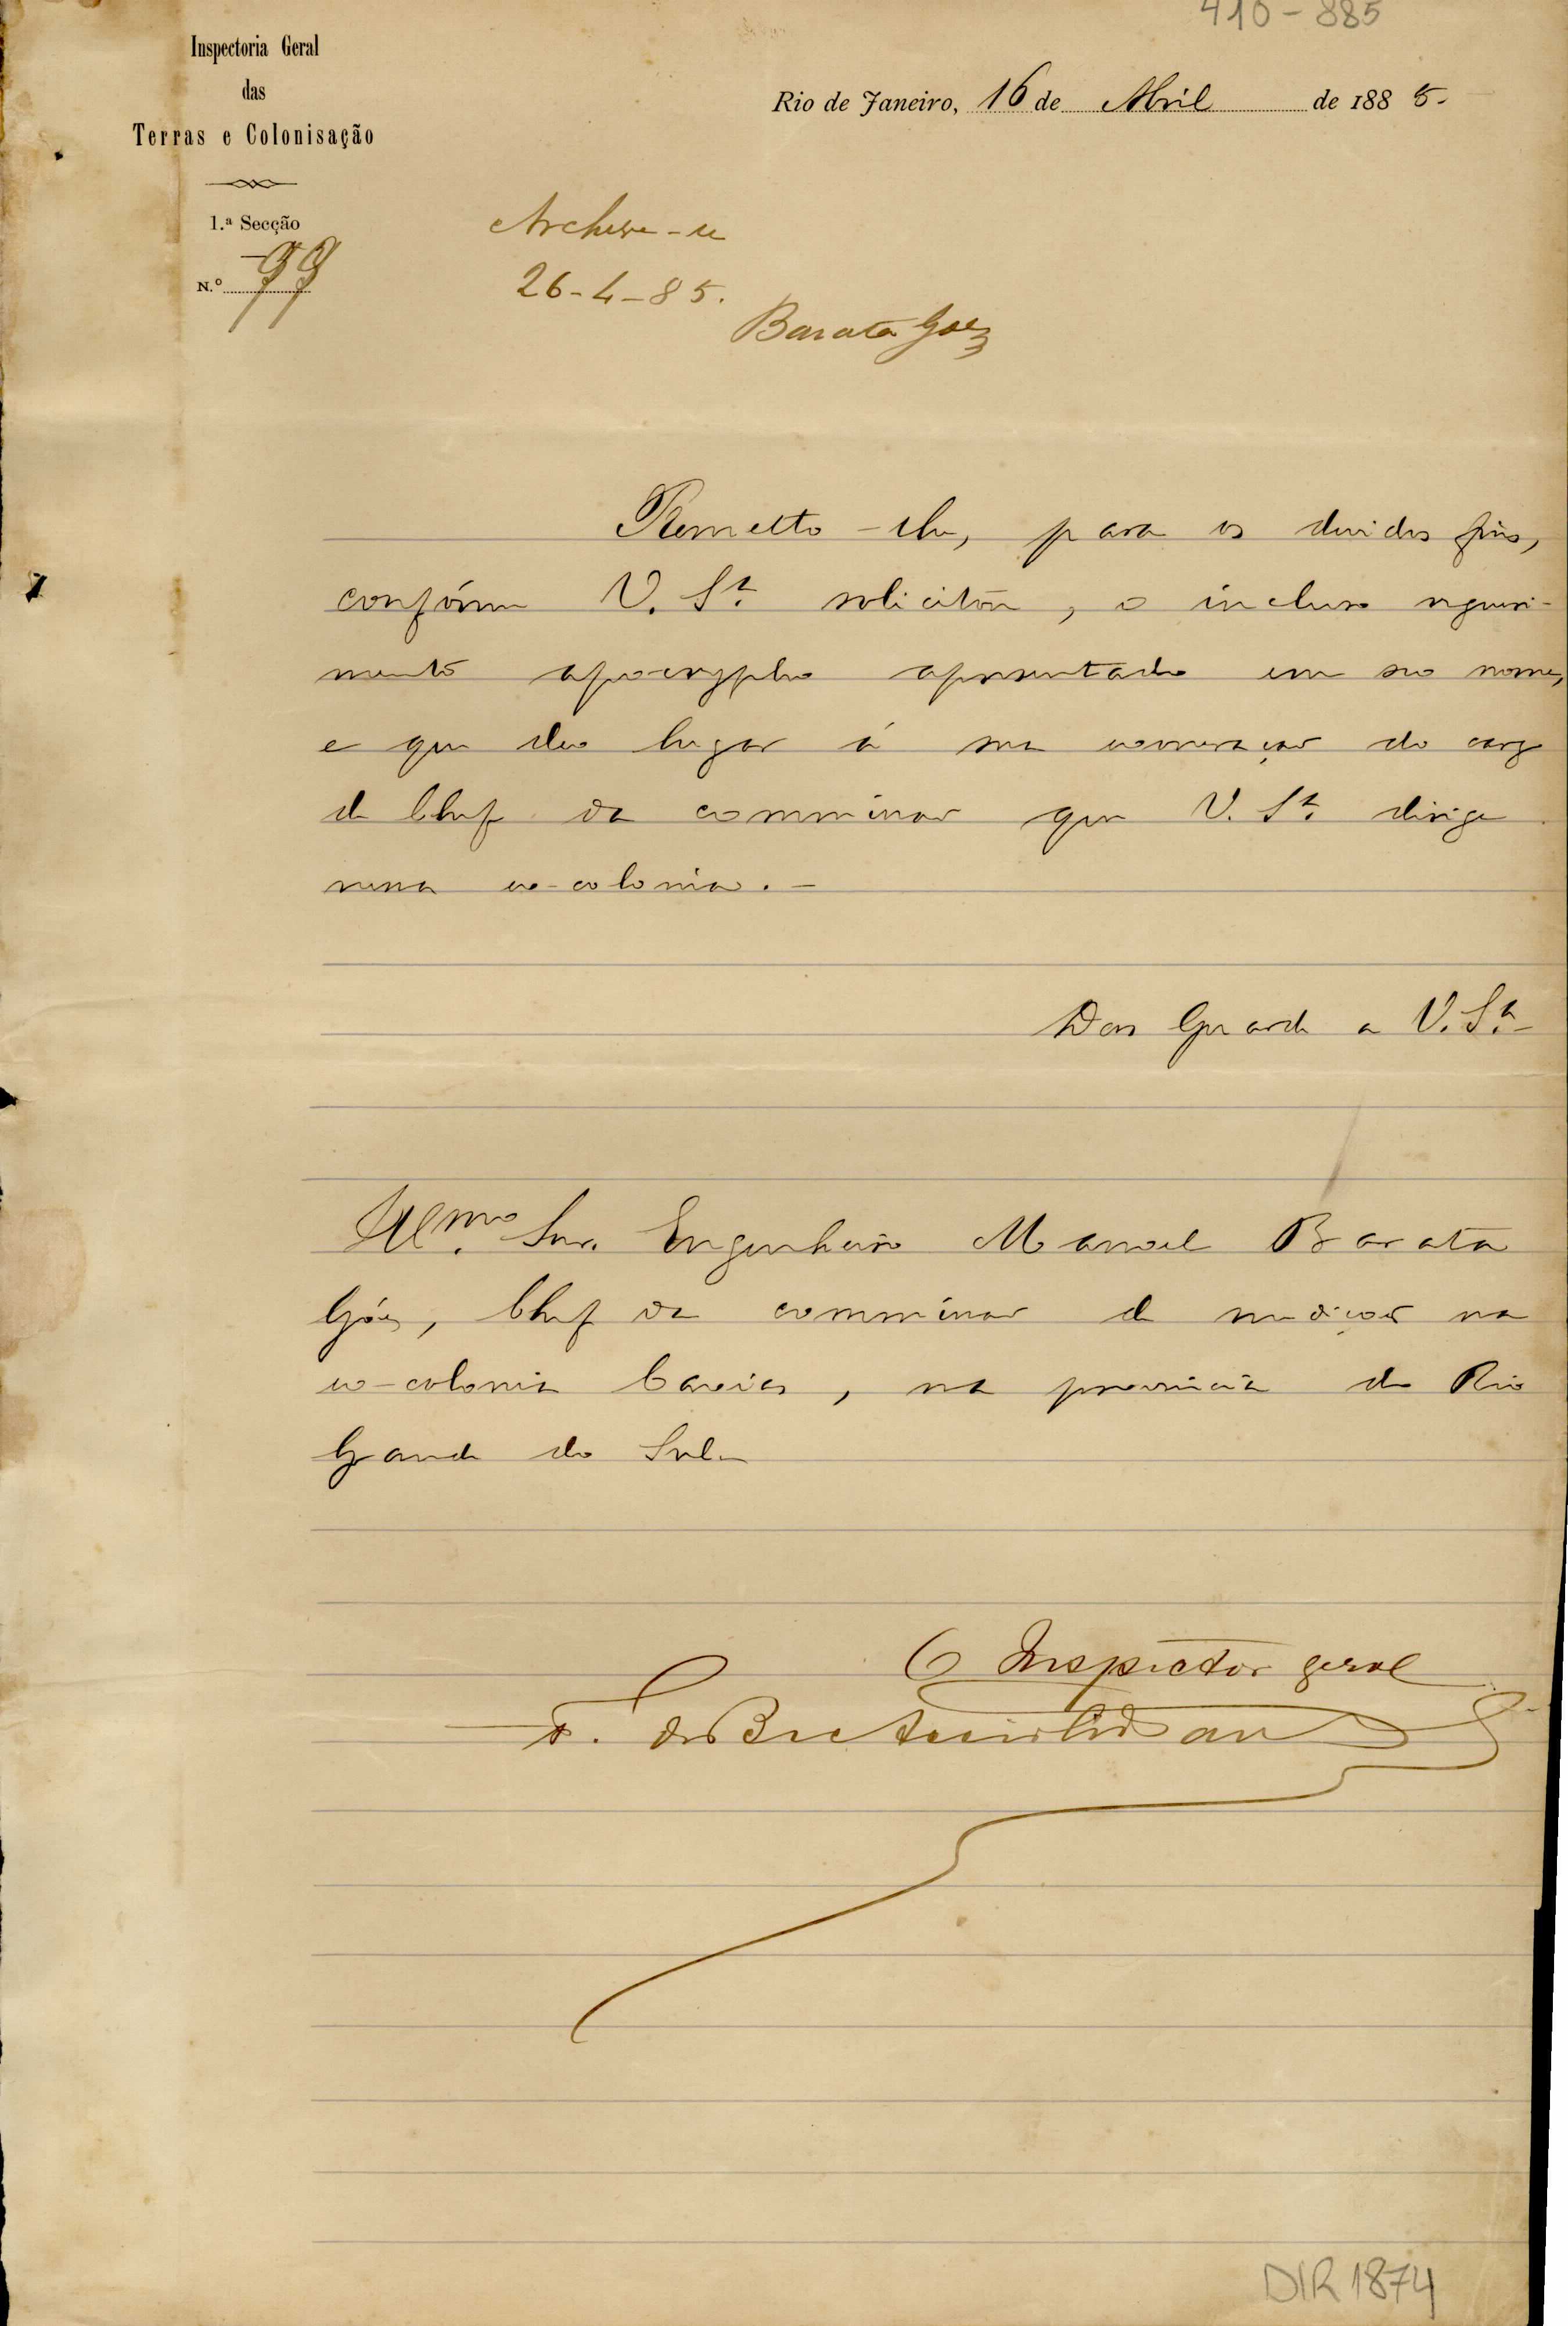 410-885
Inspectoria Geral
das
Terras e Colonisação
Rio de Janeiro, 16 de Abril de 1885.
1.ª Secção
N.º 99
Archive-se
26-4-85.
Barata Góes
Remetto-lhe, para os devidos fins,
confórme V. Sª. solicitou, o incluso requeri-
mento apocrypho apresentado em seo nome,
e que deo lugar á sua exoneração do cargo
de Chefe da commissão que V. Sª. dirige
nessa ex-colonia.-
Deos Guarde a V. Sª.-
Illmo. Snr. Engenheiro Manoel Barata
Góes, Chefe da commissão de medição na
ex-colonia Caxias, na provincia do Rio
Grande do Sul.
O Inspector geral
F. de B. e Accioli de
DIR 1874